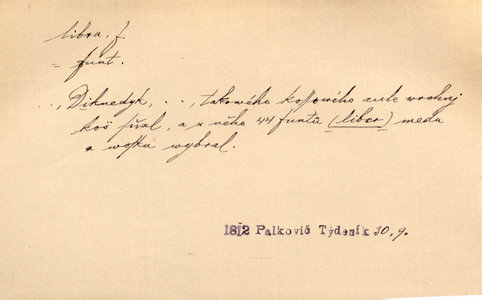 libra. f
= funt.
..., Diknedyk, ..., takowého kossowého aule wrohnj
koš sſal, a z něho 44 funtů (liber) medu
a wosku wybral.
1812 Palkovič Týdeník 30. 9.